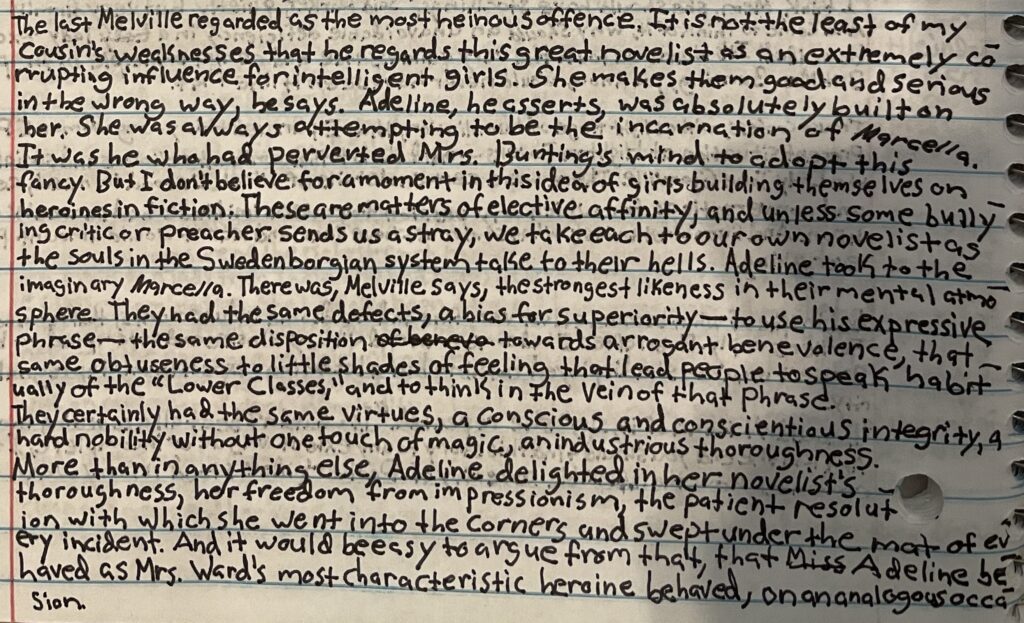 The last Melville regarded as the most heinous offence. It is not the least of my
cousin's weaknesses that he regards this great novelist as an extremely co-
rrupting influence for intelligent girls. She makes them good and serious
in the wrong way, he says. Adeline, he asserts, was absolutely built on
her. She was always attempting to be the incarnation of Marcella.
It was he who had perverted Mrs. Bunting's mind to adopt this
fancy. But I don't believe for a moment in this idea of girls building themselves on
heroines in fiction. These are matters of elective affinity, and unless some bully-
ing critic or preacher sends us astray, we take each to our own novelist as
the souls in the Swedenborgian system take to their hells. Adeline took to the
imaginary Marcella. There was, Melville says, the strongest likeness in their mental atmo-
sphere. They had the same defects, a bias for superiority—to use his expressive
phrase—the same disposition of beneva towards arrogant benevalence, that
same obtuseness to little shades of feeling that lead people to speak habit-
ually of the "Lower Classes," and to think in the vein of that phrase.
They certainly had the same virtues, a conscious and conscientious integrity, a
hard nobility without one touch of magic, an industrious thoroughness.
More than in anything else, Adeline delighted in her novelist's
thoroughness, her freedom from impressionism, the patient resolut-
ion with which she went into the corners and swept under the mat of ev-
ery incident. And it would be easy to argue from that, that Miss Adeline be-
haved as Mrs. Ward's most characteristic heroine behaved, on an analogous occa-
sion.